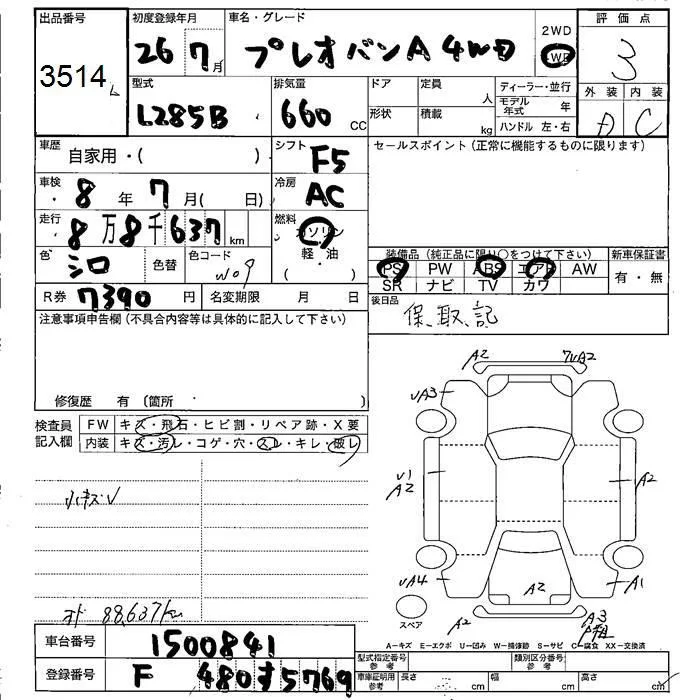 出品番号 初度登録年月 車名・グレード 2WD 評価点
3514 26 7月 プレオバンA 4WD 4WD 3
型式 排気量 ドア 定員 人 ディーラー・並行 外装 内装
L285B 660 CC 形状 積載 kg モデル年式 年 A C
ハンドル 左・右
車歴 自家用・( ) シフト F5 セールスポイント(正常に機能するものに限ります)
車検 8年 7月( 日) 冷房 AC
走行 8万8千637km 燃料 ガソリン
軽・油
( )
色 シロ 色替 色コード W09 装備品(純正品に限り○をつけて下さい) 新車保証書
PS PW ABS エアB AW 有・無
SR ナビ TV カワ
R券 7390円 名変期限 月 日 後日品 保、取、記
注意事項申告欄(不具合内容等は具体的に記入して下さい)
修復歴 有 (箇所
検査員 FW キズ・飛石・ヒビ割・リペア跡・X要
記入欄 内装 キズ・汚レ・コゲ・穴・スレ・キレ・破レ
A2
UA3
U1
A2 A2
小キズV
UA4 A2 A1
オド 88,637km
スペア A2 A3
A-キズ E-エクボ U-凹み W-補修跡 S-サビ C-腐食 XX-交換済
車台番号 1500841
型式指定番号 参考 類別区分番号 参考
登録番号 F 480す5769
車庫証明用 参考 長さ cm 幅 cm 高さ cm